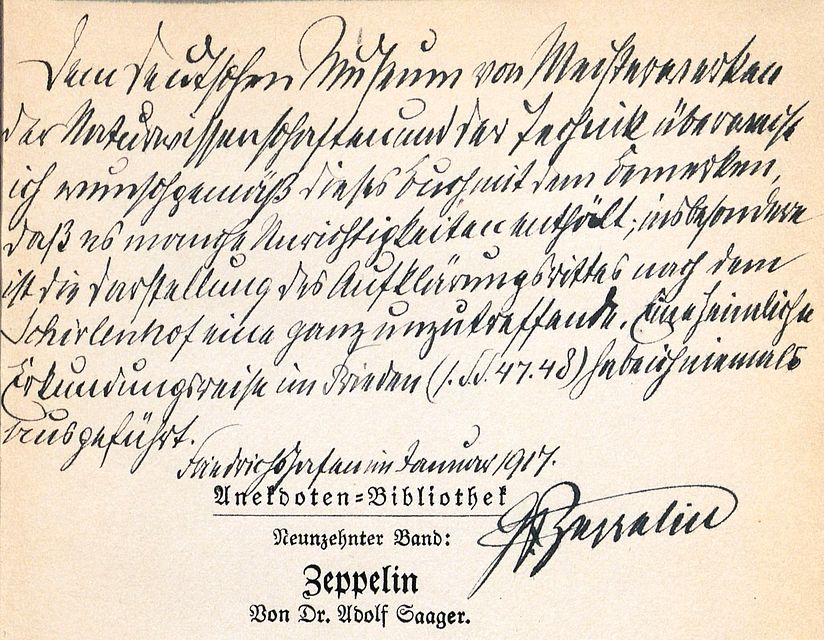 Dem Deutschen Museum von Meisterwerken
der Naturwissenschaften und der Technik überweise
ich wunschgemäß dieses Buch mit dem Bemerken,
daß es manche Unrichtigkeiten enthält; insbesondere
ist die Darstellung des Aufklärungsrittes nach dem
Schirlenhof eine ganz unzutreffende. Eine heimliche
Erkundungsreise im Frieden (s. SS. 47.48) habe ich niemals
ausgeführt.
Friedrichshafen im Januar 1917.
Anekdoten=Bibliothek
Zeppelin
Neunzehnter Band:
Zeppelin
Von Dr. Adolf Saager.